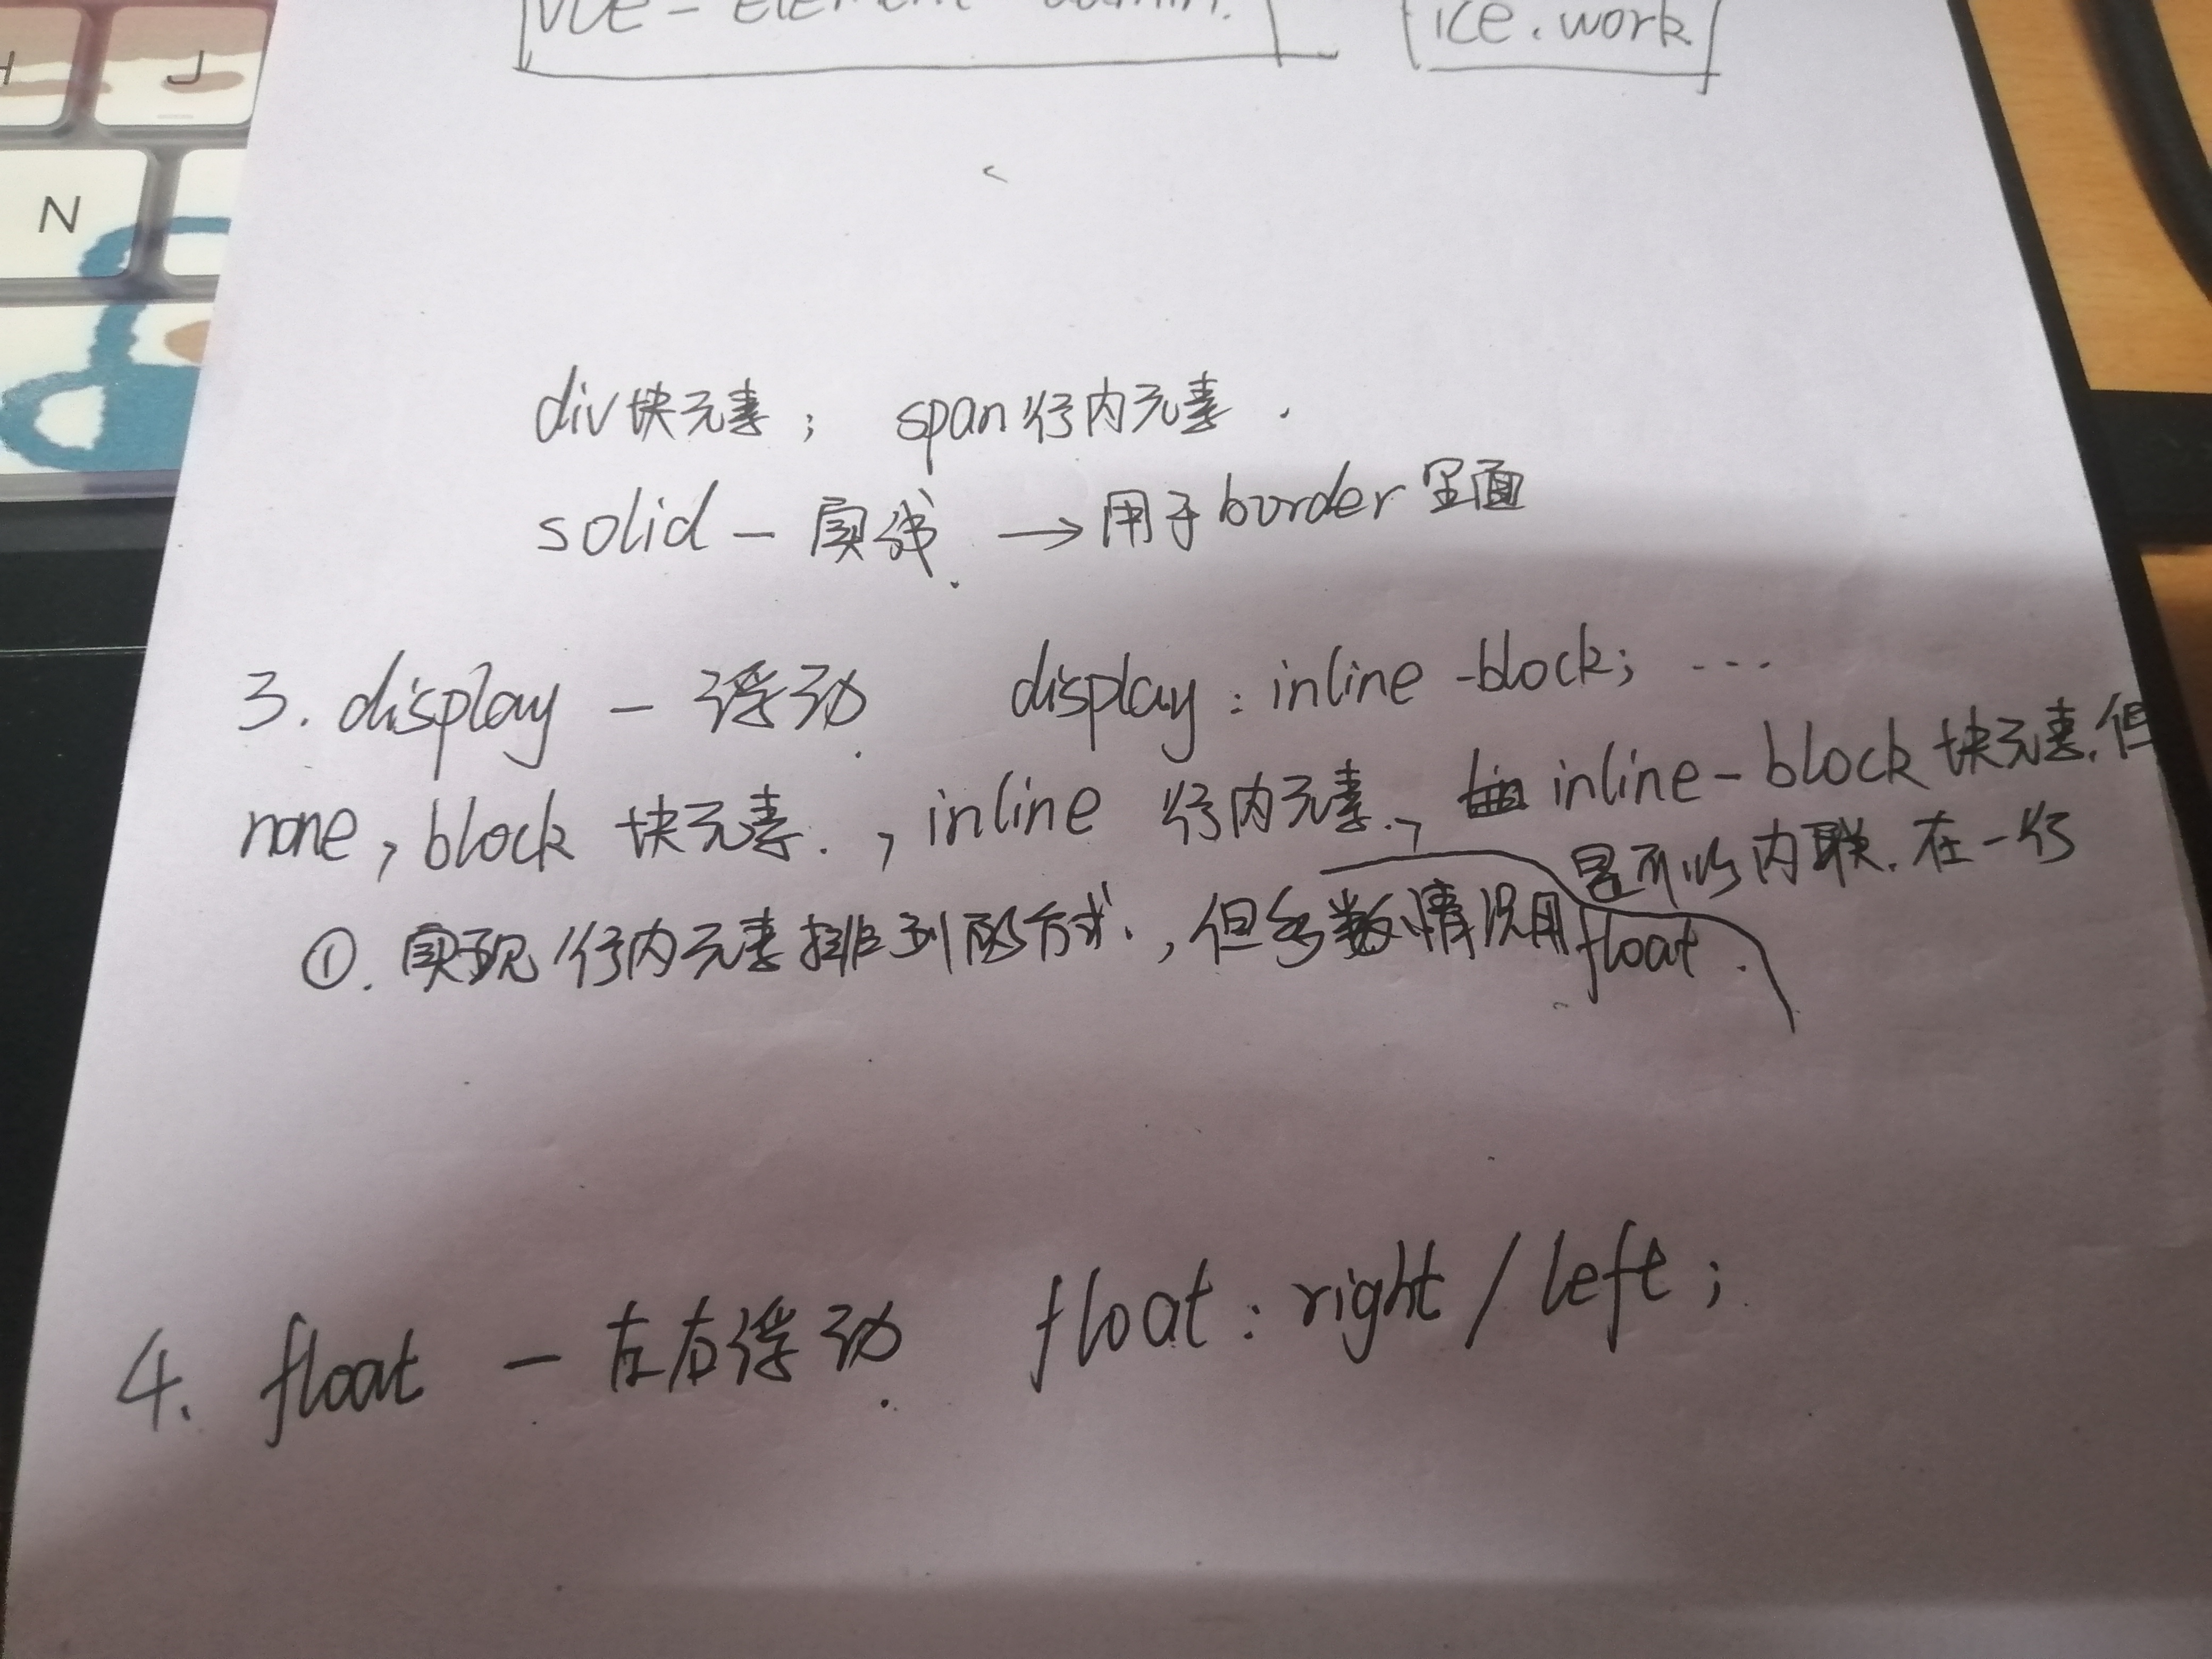 vue-element-admin. ice.work
H
J
N
div块元素; span行内元素.
solid — 实线. → 用于border里面
3. display — 浮动. display: inline-block; ...
none, block 块元素., inline 行内元素., inline-block 块元素.但
是可以内联.在一行
①. 实现行内元素排列的方式., 但多数情况用float.
4. float — 左右浮动. float: right / left;